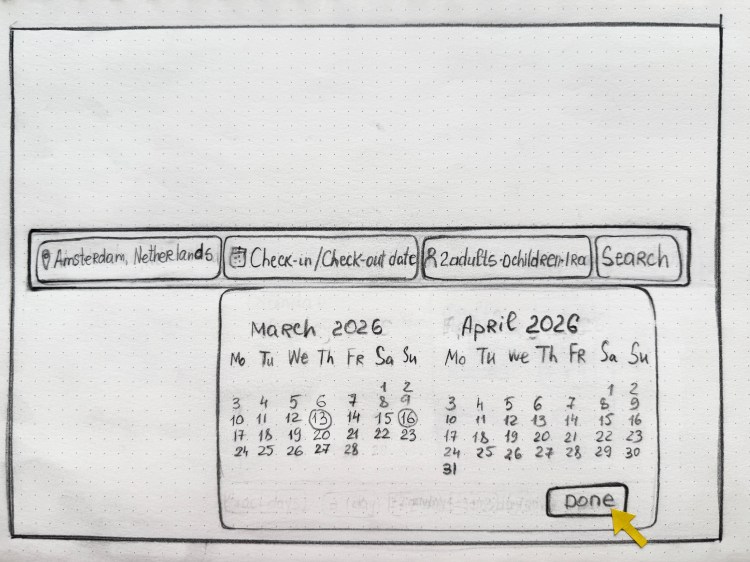 Amsterdam, Netherlands Check-in/Check-out date 2adults·0children·1ra Search
March 2026 April 2026
Mo Tu We Th Fr Sa Su Mo Tu We Th Fr Sa Su
1 2 1 2
3 4 5 6 7 8 9 3 4 5 6 7 8 9
10 11 12 13 14 15 16 10 11 12 13 14 15 16
17 18 19 20 21 22 23 17 18 19 20 21 22 23
24 25 26 27 28 24 25 26 27 28 29 30
31
Done